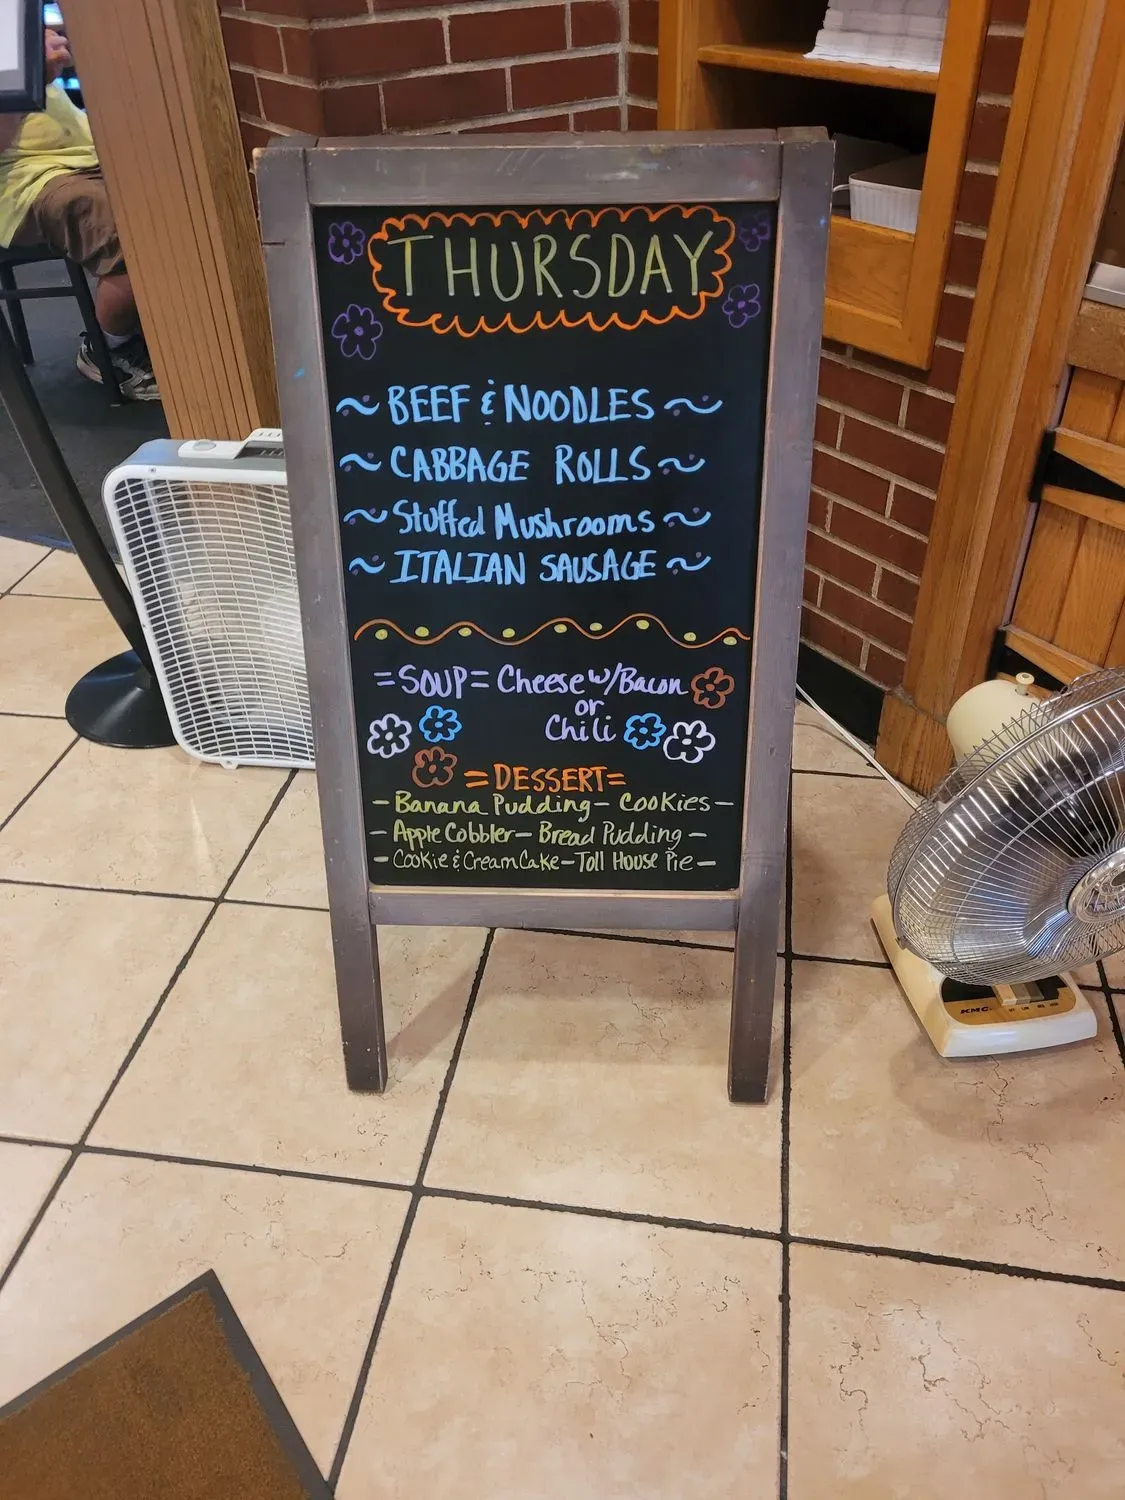 THURSDAY
~ BEEF & NOODLES ~
~ CABBAGE ROLLS ~
~ Stuffed Mushrooms ~
~ ITALIAN SAUSAGE ~
=SOUP= Cheese w/Bacon
or
Chili
=DESSERT=
- Banana Pudding - Cookies -
- Apple Cobbler - Bread Pudding -
- Cookie & Cream Cake - Toll House Pie -
KMC